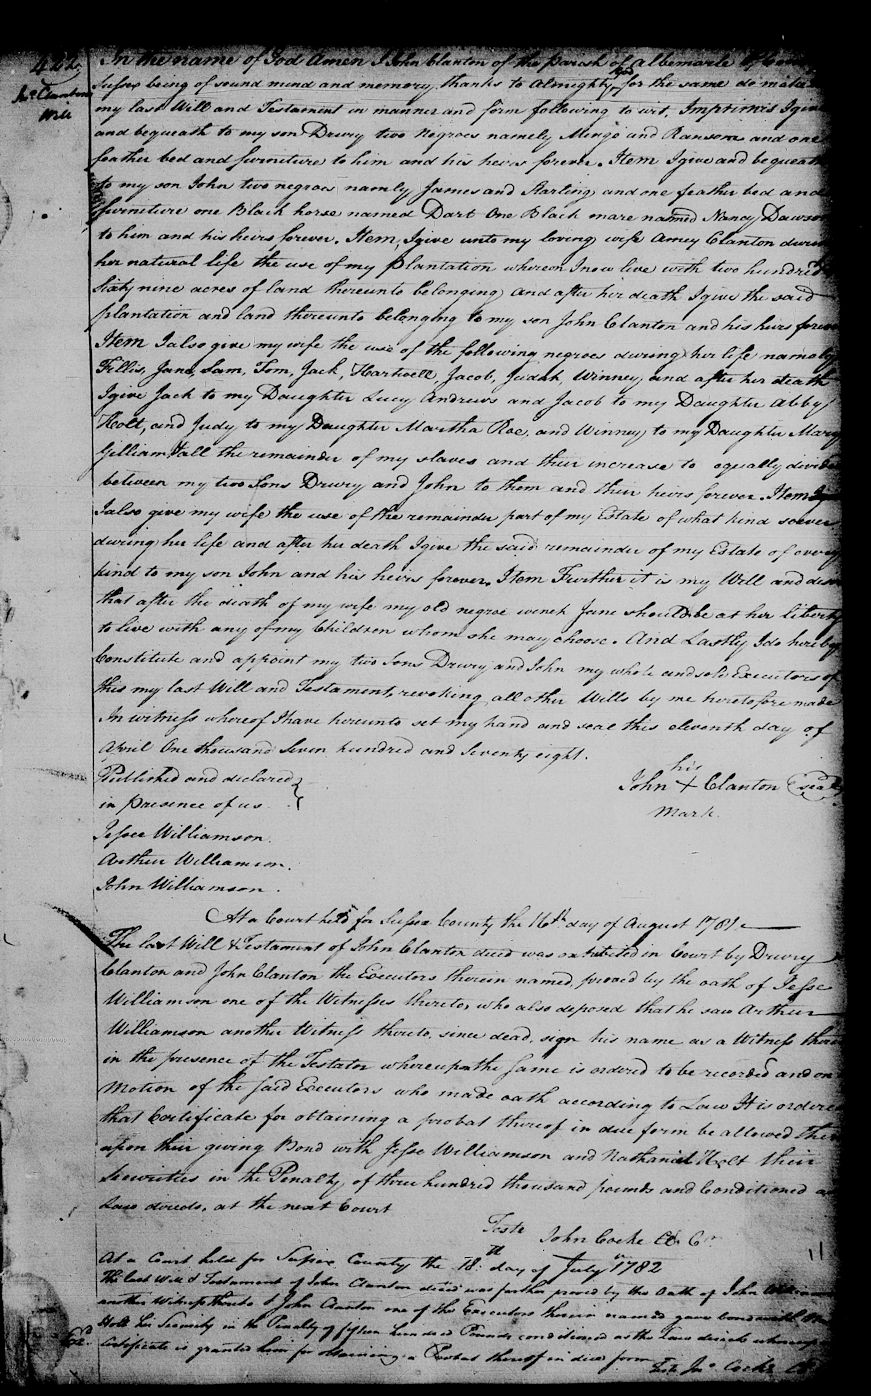 422
Jno. Clanton's
Will
In the name of God Amen I John Clanton of the parish of Albemarle &
Sussex being of sound mind and memory, thanks to Almighty God for the same do make
my last Will and Testament in manner and form following to wit, Imprimis I give
and bequeath to my son Drury two Negroes namely Mingo and Ransom and one
feather bed and furniture to him and his heirs forever. Item I give and bequeath
to my son John two negroes namly James and Starling and one feather bed and
furniture one Black horse named Dart One Black mare named Nancy Dawson
to him and his heirs forever, Item, I give unto my loving wife Amey Clanton during
her natural life the use of my plantation whereon I now live with two hundred &
sixty nine acres of land thereunto belonging and after her death I give the said
plantation and land thereunto belonging to my son John Clanton and his heirs forever
Item I also give my wife the use of the following negroes during her life namely
Fillis, Jane, Sam, Tom, Jack, Hartwell, Jacob, Judah, Winney, and after her death
I give Jack to my Daughter Lucy Andrews and Jacob to my Daughter Abby
Holt, and Judy to my Daughter Martha Roe, and Winney to my Daughter Mary
Gilliam, & all the remainder of my slaves and their increase to equally divided
between my two Sons Drury and John to them and their heirs forever. Item
I also give my wife the use of the remainder part of my Estate of what kind soever
during her life and after her death I give the said remainder of my Estate of every
kind to my son John and his heirs forever, Item Further it is my Will and desire
that after the death of my wife my old negroe wench Jane should be at her liberty
to live with any of my Children whom she may choose. And Lastly I do hereby
Constitute and appoint my two Sons Drury and John my whole and sole Executors of
this my last Will and Testament, revoking all other Wills by me heretofore made
In witness whereof I have hereunto set my hand and seal this eleventh day of
April One thousand Seven hundred and Seventy eight.
Published and declared
in presence of us
his
John + Clanton (seal)
mark.
Jesse Williamson.
Arthur Williamson.
John Williamson.
At a Court held for Sussex County the 16th day of August 1781
The last Will & Testament of John Clanton decd was exhibited in Court by Drury
Clanton and John Clanton the Executors therein named, proved by the oath of Jesse
Williamson one of the Witnesses thereto, who also deposed that he saw Arthur
Williamson another Witness thereto, since dead, sign his name as a Witness
in the presence of the Testator whereupon the same is ordered to be recorded and on
Motion of the said Executors who made oath according to Law It is ordered
that Certificate for obtaining a probat thereof in due form be allowed them
upon their giving Bond with Jesse Williamson and Nathaniel Holt their
Securities in the Penalty of three hundred thousand pounds and Conditioned as
Law directs, at the next Court
Teste John Cocke Ct.
At a Court held for Sussex County the 18th day of July 1782
The last Will & Testament of John Clanton decd was further proved by the Oath of John Williamson
another Witness thereto & John Clanton one of the Executors therein named gave bond with
Holt his Security in the Penalty of fifteen hundred Pounds conditioned as the Law directs whereupon
Certificate is granted him for obtaining a Probat thereof in due form
Teste Jno. Cocke